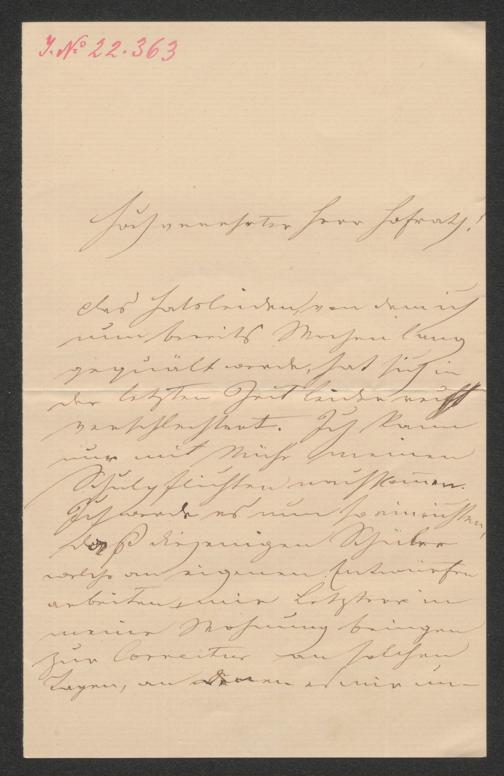 J. No 22.363
Hochverehrter Herr Hofrath!
das Halsleiden, von dem ich
nun bereits Wochen lang
gequält werde, hat sich in
der letzten Zeit leider recht
verschlechtert. Ich kann
nur mit Mühe meinen
Schulpflichten nachkommen.
Ich werde es nun so einrichten,
daß diejenigen Schüler
welche an eigenen Entwürfen
arbeiten, mir Letztere in
meine Wohnung bringen
zur Correctur an solchen
Tagen, an denen es mir un-